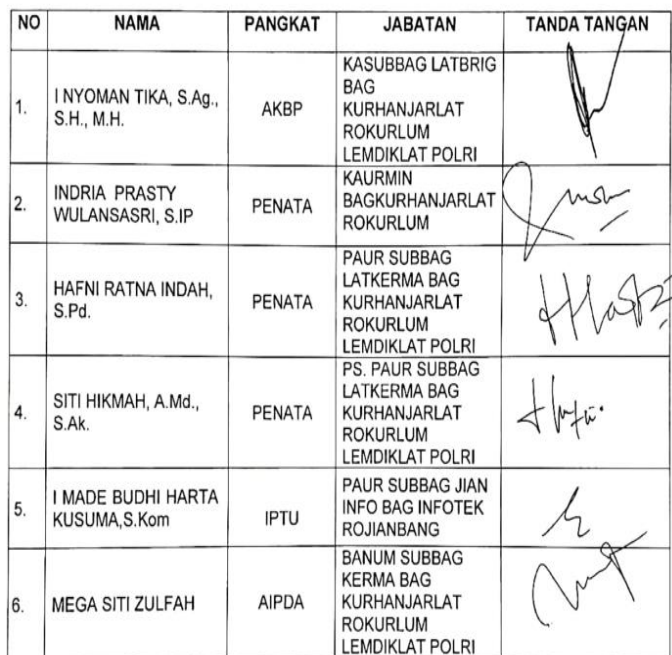 NO NAMA PANGKAT JABATAN TANDA TANGAN
1. I NYOMAN TIKA, S.Ag., S.H., M.H. AKBP KASUBBAG LATBRIG BAG KURHANJARLAT ROKURLUM LEMDIKLAT POLRI
2. INDRIA PRASTY WULANSASRI, S.IP PENATA KAURMIN BAGKURHANJARLAT ROKURLUM
3. HAFNI RATNA INDAH, S.Pd. PENATA PAUR SUBBAG LATKERMA BAG KURHANJARLAT ROKURLUM LEMDIKLAT POLRI
4. SITI HIKMAH, A.Md., S.Ak. PENATA PS. PAUR SUBBAG LATKERMA BAG KURHANJARLAT ROKURLUM LEMDIKLAT POLRI
5. I MADE BUDHI HARTA KUSUMA,S.Kom IPTU PAUR SUBBAG JIAN INFO BAG INFOTEK ROJIANBANG
6. MEGA SITI ZULFAH AIPDA BANUM SUBBAG KERMA BAG KURHANJARLAT ROKURLUM LEMDIKLAT POLRI